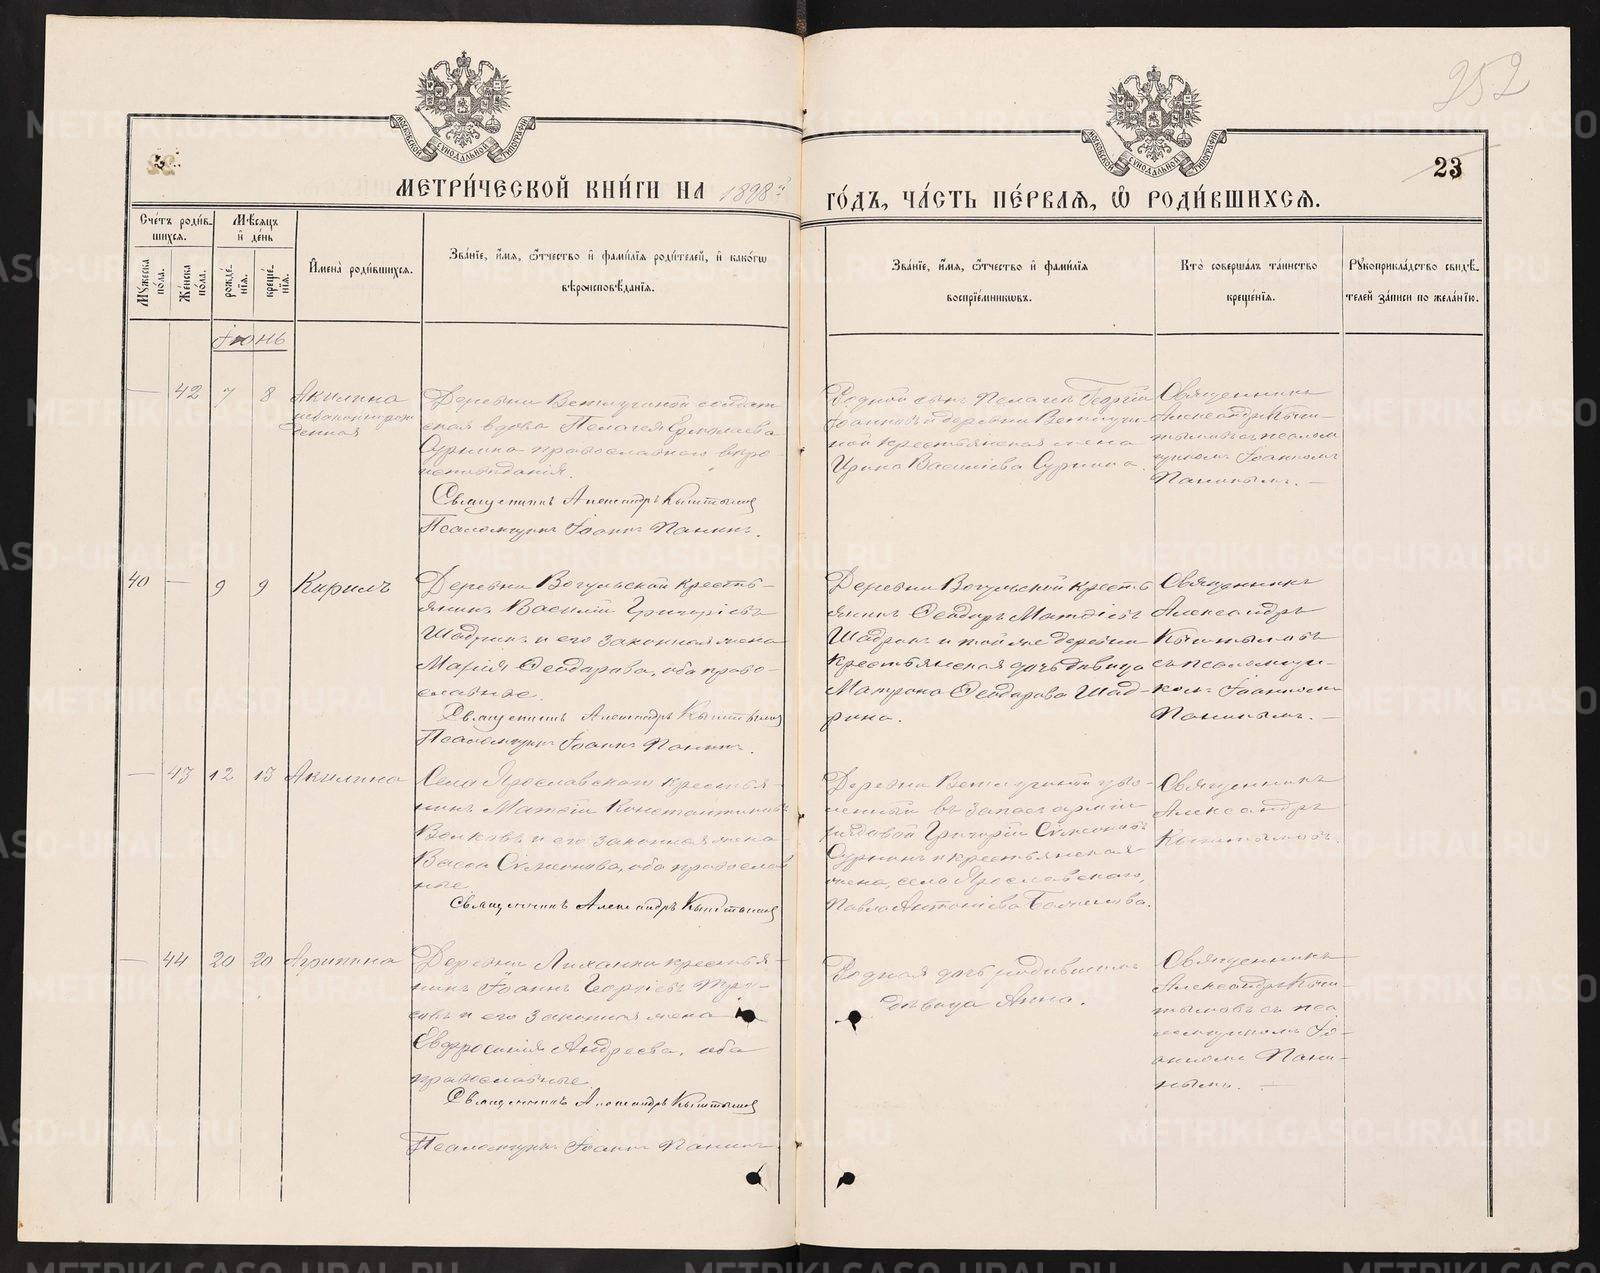 252
МОСКОВСКОЙ СУНОДАЛЬНОЙ ТИПОГРАФІИ
МОСКОВСКОЙ СУНОДАЛЬНОЙ ТИПОГРАФІИ
23
МЕТРИ́ЧЕСКОЙ КНИ́ГИ НА 1898й
ГО́ДЪ, ЧА́СТЬ ПЕ́РВАѦ, Ѽ РОДИ́ВШИХСѦ.
Сче́тъ роди́вшихсѧ.
Мꙋ́жеска по́ла.
Же́нска по́ла.
Мѣ́сѧцъ и҆ де́нь
рожде́нїѧ.
креще́нїѧ.
И҆мена̀ роди́вшихсѧ.
Зва́нїе, и҆́мѧ, ѻ҆́тчество и҆ фами́лїѧ роди́телей, и҆ како́гѡ
вѣроисповѣ́данїѧ.
Зва́нїе, и҆́мѧ, ѻ҆́тчество и҆ фами́лїѧ
воспрїе́мникѡвъ.
Кто̀ соверша́лъ та́инство
креще́нїѧ.
Рꙋкоприкла́дство свидѣ́телей за́писи по жела́нїю.
Іюнь
— 42 7 8 Акилина
незаконнорож
денная
Деревни Ветлугиной солдат
ская вдова Пелагея Ермолаева
Сурнина православнаго веро-
исповеданія.
Священникъ Александръ Кыштымов
Псаломщикъ Іоаннъ Панинъ.
Родной сынъ Пелагеи Георгій
Іоанновъ и деревни Ветлуги-
ной крестьянская жена
Ирина Василіева Сурнина.
Священникъ
Александръ Кыш-
тымовъ съ псалом
щикомъ Іоанномъ
Панинымъ. —
40 — 9 9 Кирилъ
Деревни Вогульской кресть-
янинъ Василій Григоріевъ
Шадринъ и его законная жена
Марія Ѳеодорова, оба право-
славные.
Священникъ Александръ Кыштымов
Псаломщикъ Іоаннъ Панинъ.
Деревни Вогульской кресть
янинъ Ѳеодоръ Матвіевъ
Шадринъ и той же деревни
крестьянская дочь девица
Матрона Ѳеодорова Шад-
рина.
Священникъ
Александръ
Кыштымовъ
съ псаломщи-
комъ Іоанномъ
Панинымъ. —
— 43 12 13 Акилина
Села Ярославскаго крестья-
нинъ Матѳій Константиновъ
Волковъ и его законная жена
Васса Сѵмеонова, оба православ
ные.
Священникъ Александръ Кыштымов
Деревни Ветлугиной уво-
ленный въ запасъ арміи
рядовой Григорій Сѵмеоновъ
Сурнинъ и крестьянская
жена, села Ярославскаго,
Павла Антоніева
Священникъ
Александръ
Кыштымовъ.
— 44 20 20 Агрипина
Деревни Луханки крестья-
нинъ Іоаннъ Георгіевъ
и его законная жена
Евфросинія Андреева, оба
православные.
Священникъ Александръ Кыштымов
Псаломщикъ Іоаннъ Панинъ
Родная дочь родившихъ
дѣвица Анна.
Священникъ
Александръ Кыш-
тымовъ съ пса
ломщикомъ Іо-
анномъ Пани-
нымъ. —